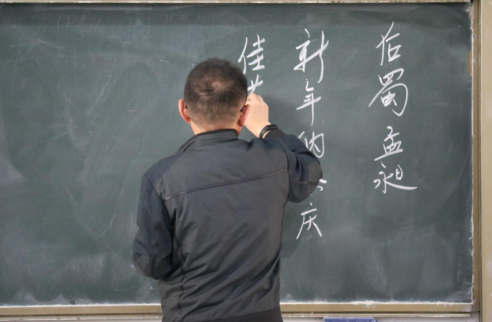 后蜀 孟昶
新年纳 庆
佳